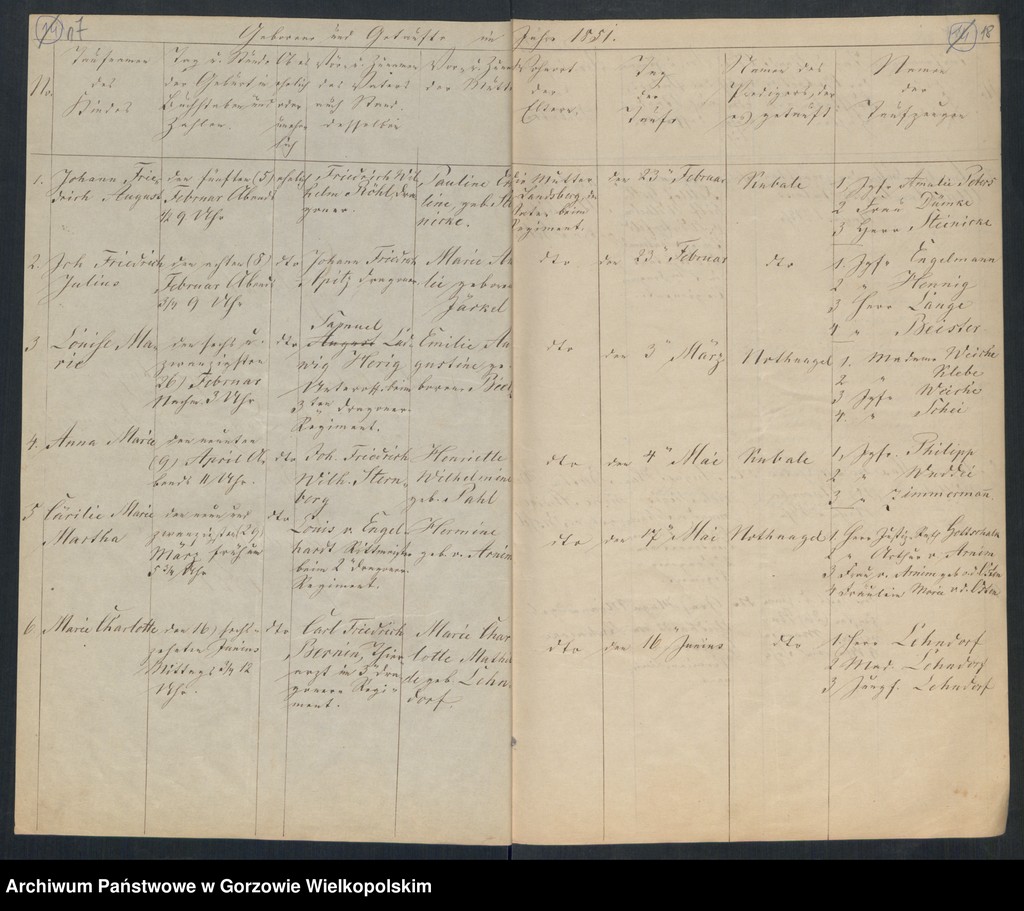 17
18
Geborene und Getaufte im Jahre 1851.
No.
Taufnamen
des
Kindes
Tag u. Stunde
der Geburt in
Buchstaben und
Zahlen.
Ob es
ehelich
oder
unehe
lich
Vor- u. Zunamen
des Vaters
auch Stand
desselben
Vor- u. Zuna
der Mutter
Wohnort
der
Eltern.
Tag
der
Taufe
Namen des
Predigers, der
es getauft
Namen
der
Taufzeugen
1.
Johann Frie-
drich August
den fünften (5)
Februar Abends
9 Uhr
ehelich
Friedrich Wil
helm Röhl, Dra
goner.
Pauline
lene, geb. St
nicke.
Mutter
Landsberg, der
Vater beim
Regiment.
den 23ten Februar
Rubale
1, Jgfr. Amalie Peters
2 Frau Dümke
3 Herr Steinicke
2.
Joh Friedrich
Julius
den achten (8)
Februar Abends
3/4 9 Uhr
dto
Johann Friedrich
Opitz Dragoner
Marie
lie geboren
Jäckel
dto
den 23 Februar
dto
1. Jgfr. Engelmann
2 " Hennig
3 Herr Lange
4 " Beister
3
Louise Ma-
rie
den sechs u.
zwanzigsten
26) Februar
Nachm. 3 Uhr
dto
August Lud
wig Herig
Unteroff. beim
3ten Dragoner-
Regiment.
Emilie Au
gustine ge-
borene
dto
den 3ten März
Nothnagel
1. Madame Weicke
2 " Klebe
3 Jgfr Weicke
4. " Schei
4.
Anna Marie
den neunten
(9) April A-
bends 11 Uhr.
dto
Joh. Friedrich
Wilh. Stern-
berg
Henriette
Wilhelmine
geb. Pahl
dto
den 4ten Mai
Rubale
1, Jgfr. Philipp
2 "
3 " Zimmermann
5
Cäcilie Marie
Martha
den neun und
zwanzigsten (29)
März früh um
5 3/4 Uhr
dto
Louis v. Engel-
hardt Rittmeister
beim 2ten Dragoner-
Regiment.
Hermine
geb v. Arnim
dto
den 17ten Mai
Nothnagel
1. Herr Justiz-Rath Gottschalk
2 " Arthur v. Arnim
3 Frau v. Arnim geb v. d. Osten
4 Fräulein Marie v. d. Osten
6.
Marie Charlotte
den 16) sechs-
zehnten Junius
Mittags 3/4 12
Uhr.
dto
Carl Friedrich
Bernin, Thier
arzt im 3ten Dra
goner Regi-
ment.
Marie Char
lotte Mathil
de geb. Lehn-
dorf.
dto
den 16 Junius
dto
1. Herr Lehndorf
2 Mad. Lehndorf
3 Jungf. Lehndorf
Archiwum Państwowe w Gorzowie Wielkopolskim